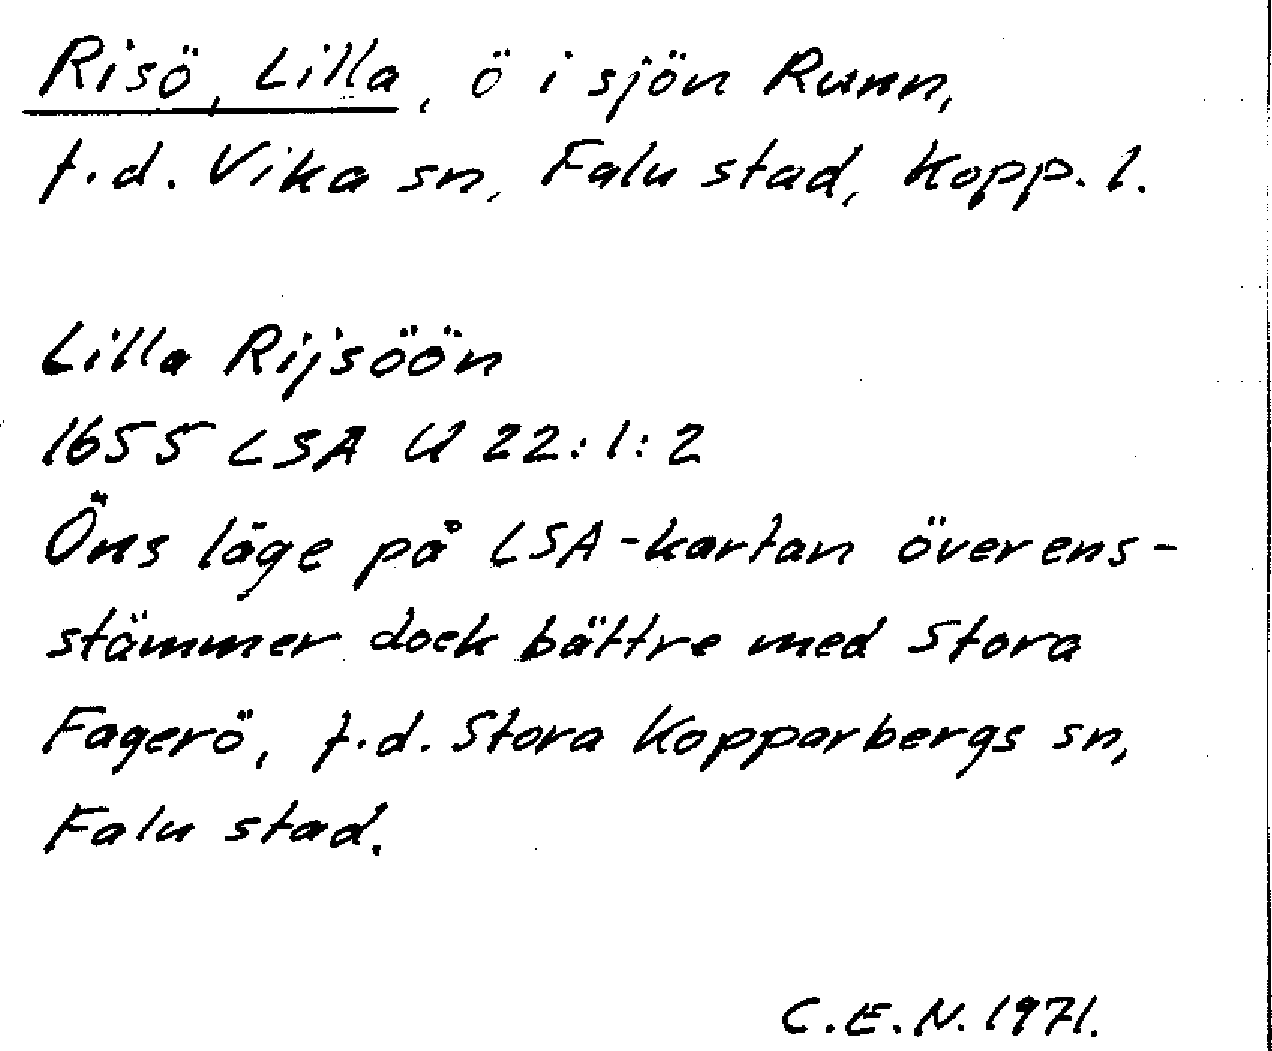 Risö, Lilla, ö i sjön Runn,
f.d. Vika sn, Falu stad, Kopp. l.
Lilla Rijsöön
1655 LSA U 22:1:2
Öns läge på LSA-kartan överens-
stämmer dock bättre med Stora
Fagerö, f.d. Stora Kopparbergs sn,
Falu stad.
C.E.N. 1971.